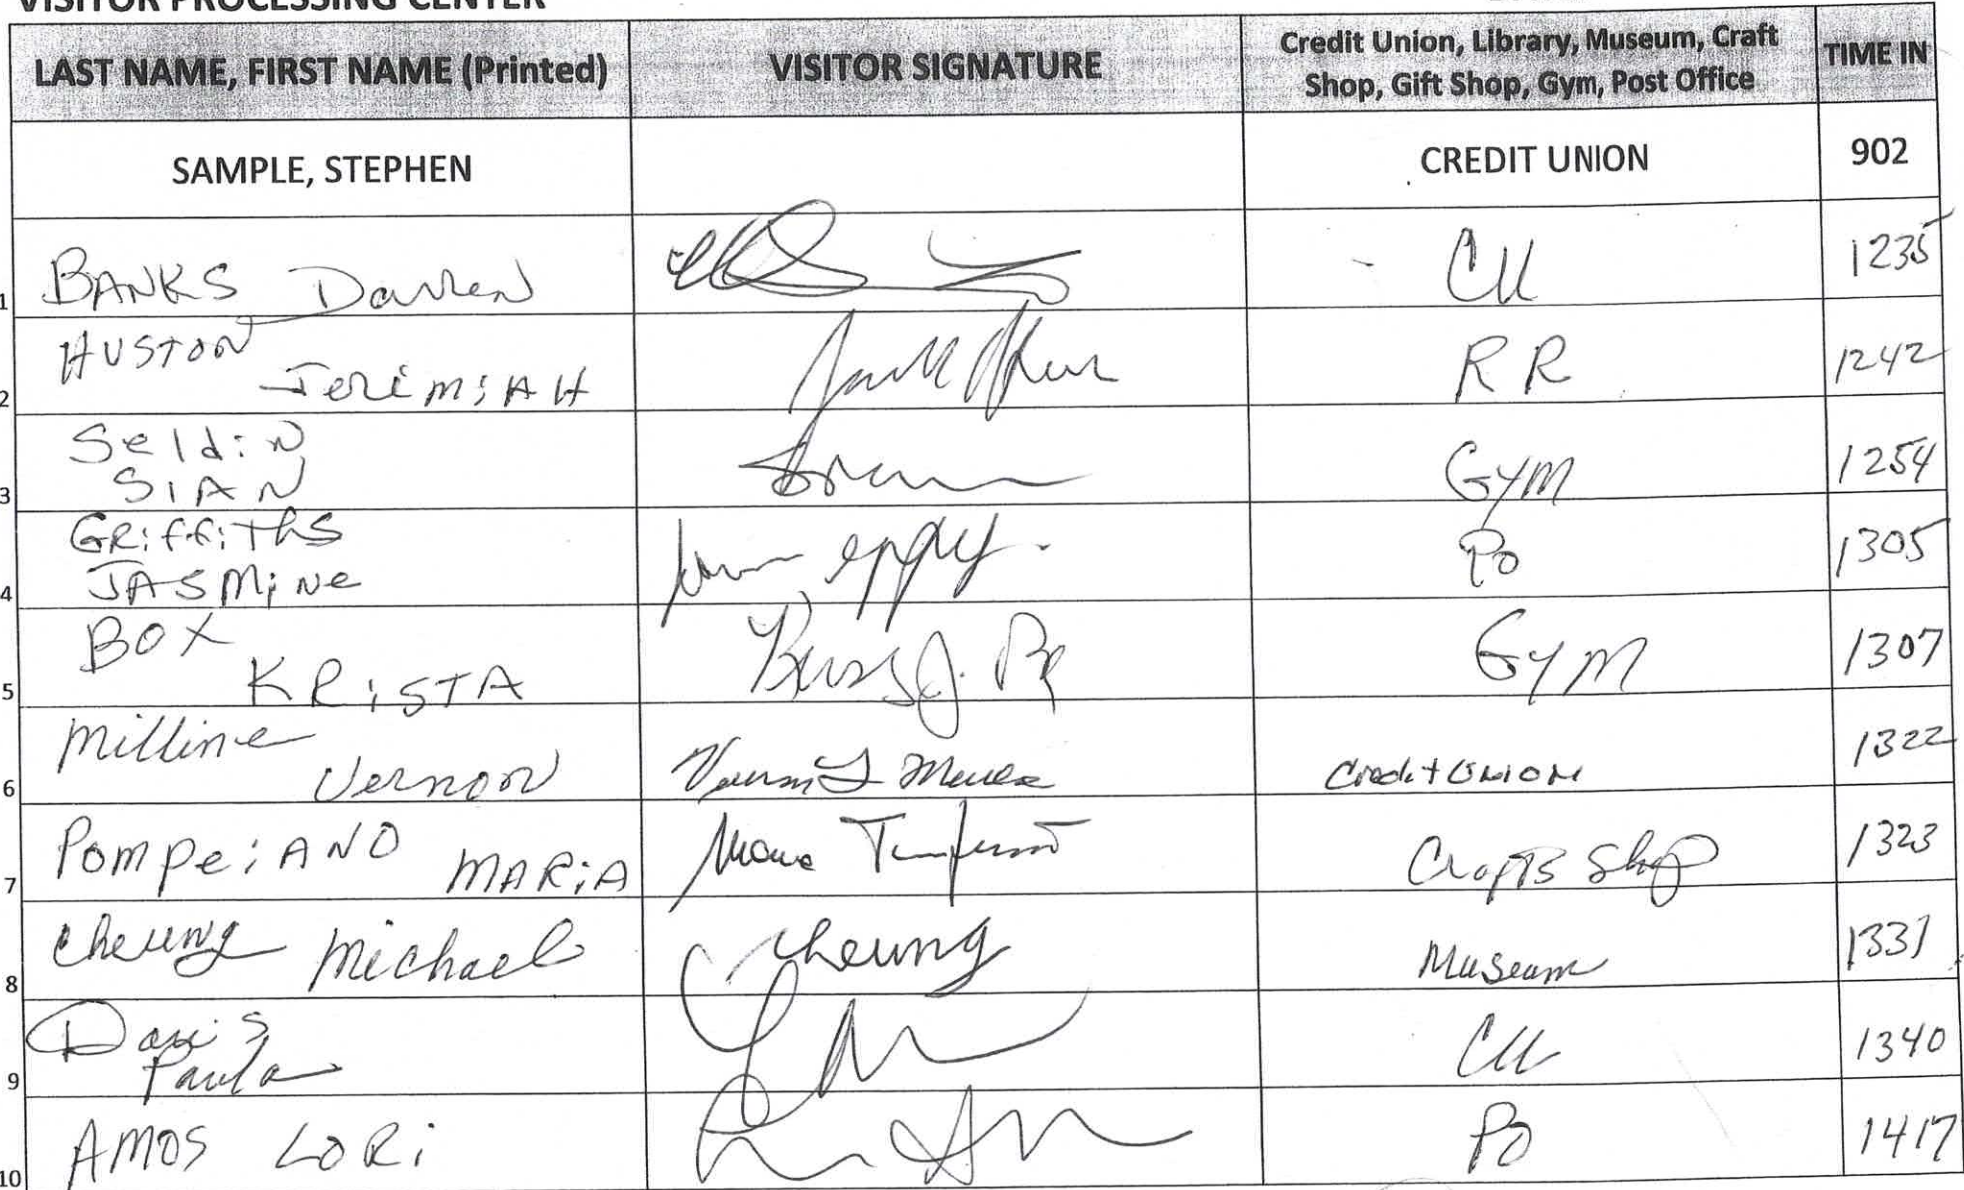 VISITOR PROCESSING CENTER
LAST NAME, FIRST NAME (Printed) VISITOR SIGNATURE Credit Union, Library, Museum, Craft Shop, Gift Shop, Gym, Post Office TIME IN
SAMPLE, STEPHEN CREDIT UNION 902
1 BANKS Darren CU 1235
2 HUSTON JeRiMiAH RR 1242
3 SeldiN SIAN GYM 1254
4 GRiffiThS JASMiNe PO 1305
5 BOX KRiSTA GYM 1307
6 Milline Vernon Credit UNION 1322
7 POMPeiANO MARiA Crafts Shop 1323
8 Cheung Michael Cheung Museum 1331
9 Davis Paula CU 1340
10 AMOS LORi PO 1417